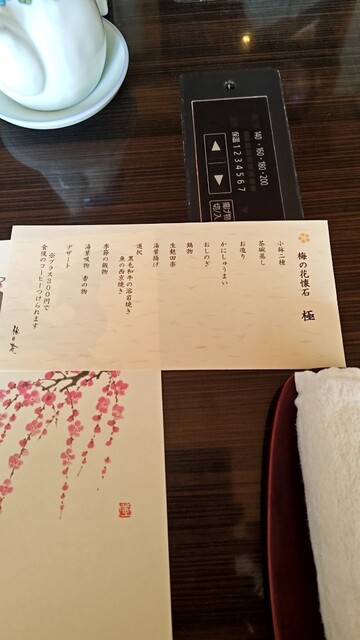 梅の花懐石 極
小鉢二種
茶碗蒸し
お造り
かにしゅうまい
おしのぎ
鍋物
生麩田楽
湯葉揚げ
選択
黒毛和牛の溶岩焼き
魚の西京焼き
季節の飯物
湯葉吸物 香の物
デザート
※プラス300円で
食後のコーヒーつけられます
140・160・180・200
保温1 2 3 4 5 6 7
切/入